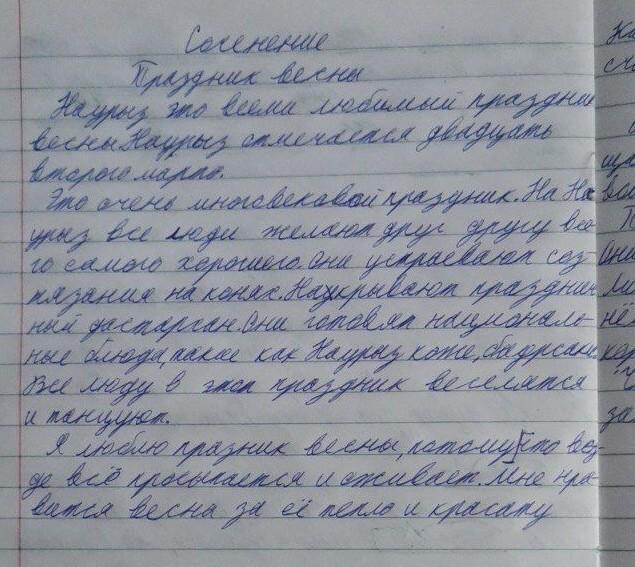 Соченение
Праздник весны
Наурыз это всеми любимый праздник
весны. Наурыз отмечается двадцать
второго марта.
Это очень многовековой праздник. На На-
урыз все люди желают друг другу все-
го самого хорошего. Они устраевают сос-
тязания на конях. Накрывают празднич
ный дастарган. Они готовят националь-
ные блюда, такое как Наурыз коже,
Все люди в этот праздник веселятся
и танцуют.
Я люблю празник весны, потому что вез-
де всё просыпается и оживает. Мне нра-
вится весна за её тепло и красату